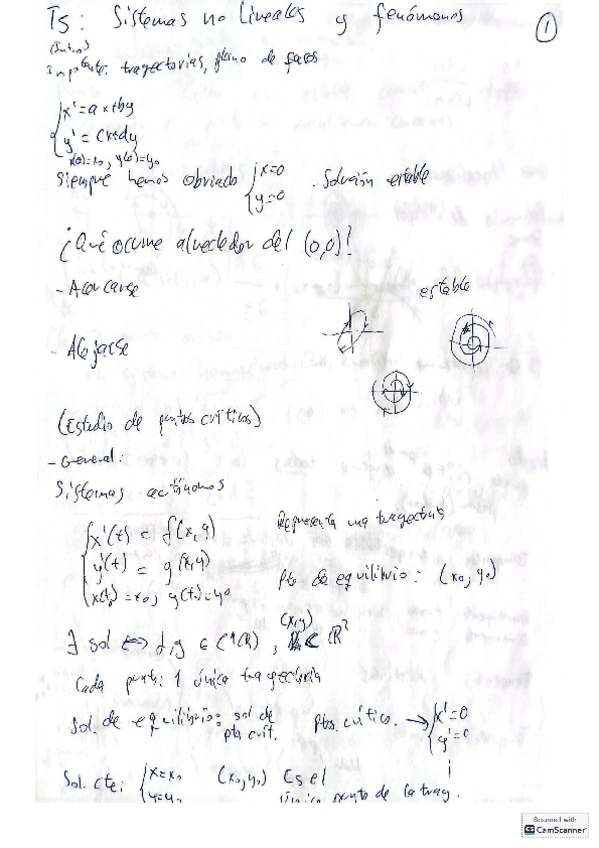 T5: Sistemas no lineales y fenómenos
①
(Intro)
Importante: trayectorias, plano de fases
{x' = ax+by
y' = cx+dy
x(0)=x₀, y(0)=y₀
Siempre hemos obviado {x=0
y=0 . Solución estable
¿Qué ocurre alrededor del (0,0)?
- Acercarse
estable
- Alejarse
(Estudio de puntos críticos)
- General:
Sistemas autónomos
{x'(t) = f(x,y)
y'(t) = g(x,y)
x(t₀)=x₀, y(t₀)=y₀
Representa una trayectoria
Pto de equilibrio: (x₀, y₀)
∃ sol ↔ f,g ∈ C¹(R), (x,y) ⊂ R²
Cada punto: 1 única trayectoria
Sol. de equilibrio: sol de ptos crít.
Ptos. crítico. → {x'=0
y'=0
Sol. cte: {x=x₀
y=y₀
(x₀,y₀) es el
único punto de la tray.
Scanned with
CS CamScanner